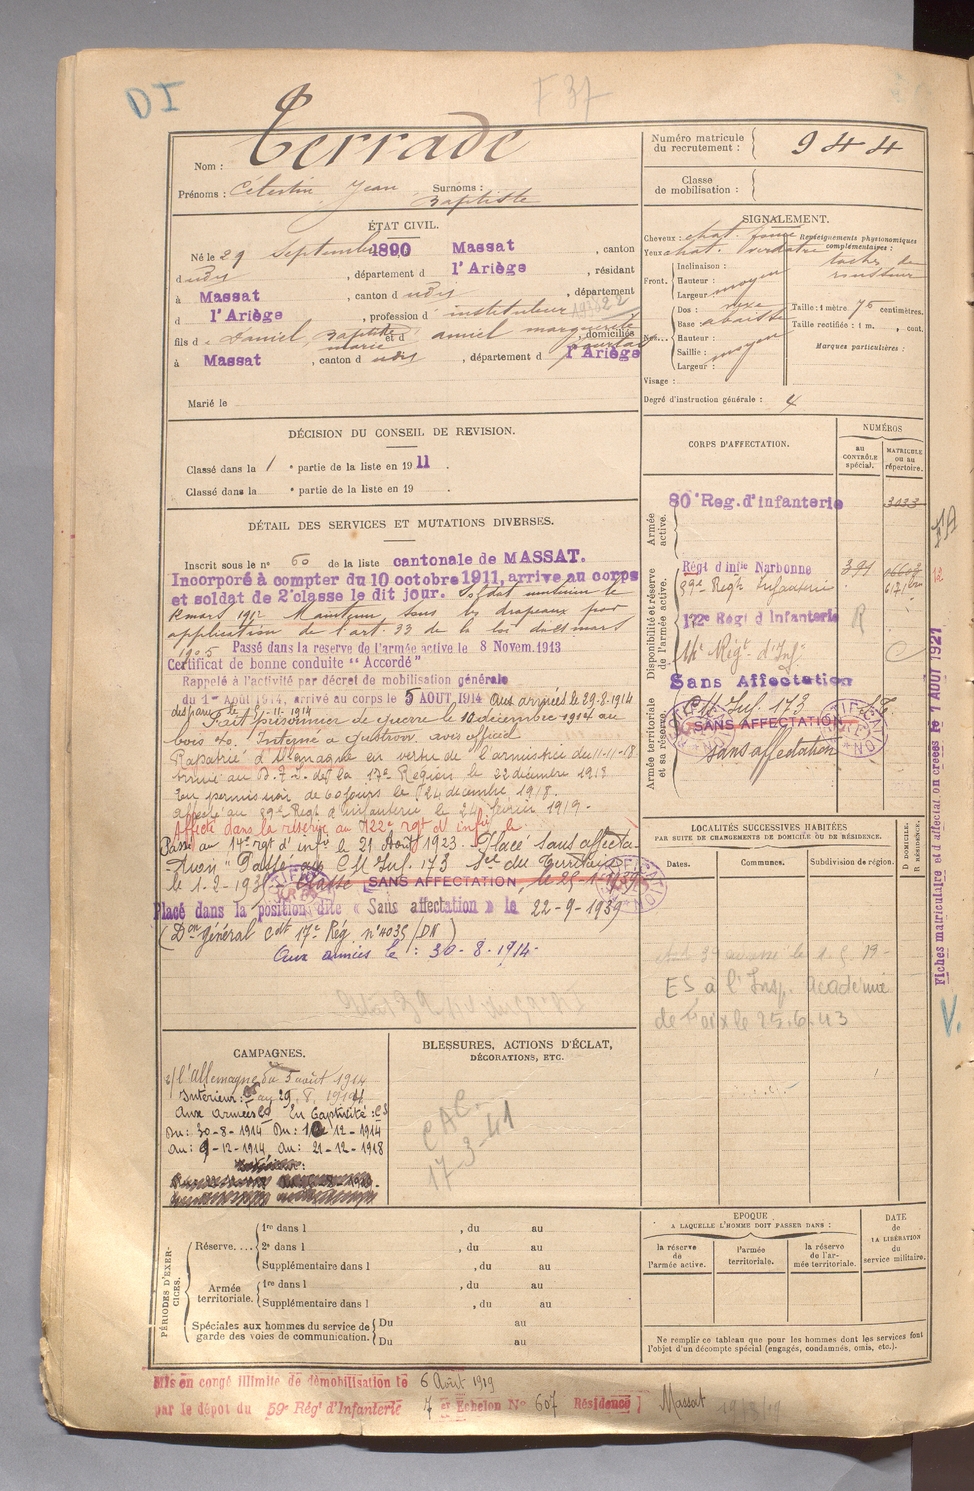 DI
F 37
Nom : Terrade
Prénoms : Célestin Jean Surnoms :
Baptiste
Numéro matricule
du recrutement : 944
Classe
de mobilisation :
ÉTAT CIVIL.
Né le 29 Septembre 1890 Massat , canton
dudit , département d l'Ariège , résidant
à Massat , canton d udit , département
d l'Ariège , profession d instituteur
fils d e Daniel Baptiste et d amiel marguerite , domiciliés
marie
à Massat , canton d udit , département d l'Ariège
Marié le
SIGNALEMENT.
Cheveux : chat. foncé Renseignements physionomiques
complémentaires :
Yeux chat. verdatre taches de
rousseur
Front. Inclinaison :
Hauteur :
Largeur : moyen
Nez... Dos : vexe
Base abaissée
Hauteur :
Saillie : moyen
Largeur :
Taille : 1 mètre 75 centimètres.
Taille rectifiée : 1 m. , cent.
Marques particulières :
Visage :
Degré d'instruction générale : 4
DÉCISION DU CONSEIL DE REVISION.
Classé dans la 1 e partie de la liste en 1911 .
Classé dans la e partie de la liste en 19 .
CORPS D'AFFECTATION.
NUMÉROS
au CONTRÔLE spécial.
MATRICULE ou au répertoire.
Armée active.
80e Reg. d'infanterie 3033
Disponibilité et réserve de l'armée active.
Régt d'infie Narbonne 391
59e Régt Infanterie
122e Regt d'Infanterie R
14e Régt d'Infie C
Sans Affectation
Armée territoriale et sa réserve.
CM Inf. 173
SANS AFFECTATION
Sans affectation
DÉTAIL DES SERVICES ET MUTATIONS DIVERSES.
Inscrit sous le n° 60 de la liste cantonale de MASSAT.
Incorporé à compter du 10 octobre 1911, arrive au corps
et soldat de 2e classe le dit jour. Soldat musicien le
mars 1912 Maintenu sous les drapeaux par
application de l'art 33 de la loi du 21 mars
1905 Passé dans la réserve de l'armée active le 8 Novem. 1913
Certificat de bonne conduite "Accordé"
Rappelé à l'activité par décret de mobilisation générale
du 1er Août 1914, arrivé au corps le 5 AOUT 1914 Aux armées le 29-8-1914
disparu le 5-11-1914
Fait prisonnier de guerre le 10 décembre 1914 au
bois 40. Interné à Gustrow avis officiel
Rapatrié d'Allemagne en vertu de l'armistice du 11-11-18
Arrivé au D.T.I. de la 17e Région le 22 décembre 1918
En permission de 60 jours le 24 décembre 1918.
affecté au 59e Régt d'Infanterie le 24 février 1919.
Affecté dans la réserve au 122e rgt d'infie le
Passé au 14e rgt d'infie le 21 Août 1923. Placé "sans affecta-
tion" Passé au CM Inf. 173
le 1-2-193 Classé SANS AFFECTATION, le 25-1-1939
Placé dans la position dite « Sans affectation » le 22-9-1939
(Don général cdt 17e Rég n° 4035/DN)
Aux armées le : 30-8-1914-
LOCALITÉS SUCCESSIVES HABITÉES
PAR SUITE DE CHANGEMENTS DE DOMICILE OU DE RÉSIDENCE.
Dates. Communes. Subdivision de région. D DOMICILE. R RÉSIDENCE.
ES à l'Insp. Académie
de Foix le 25.6.43
Fiches matriculaire et d'affectation créées le 1 AOUT 1927
V.
CAMPAGNES.
c/ l'allemagne du 5 août 1914
Intérieur : CS au 29.8.1914
Aux armées CD En Captivité : CS
Du : 30-8-1914 Du : 10-12-1914
Au : 9-12-1914 Au : 21-12-1918
BLESSURES, ACTIONS D'ÉCLAT,
DÉCORATIONS, ETC.
CAC.
17-3-41
PÉRIODES D'EXERCICES.
Réserve.... 1re dans l , du au
2e dans l , du au
Supplémentaire dans l , du au
Armée territoriale. 1re dans l , du au
Supplémentaire dans l , du au
Spéciales aux hommes du service de Du au
garde des voies de communication. Du au
EPOQUE
A LAQUELLE L'HOMME DOIT PASSER DANS :
la réserve de l'armée active.
l'armée territoriale.
la réserve de l'armée territoriale.
DATE de LA LIBÉRATION du service militaire.
Ne remplir ce tableau que pour les hommes dont les services font
l'objet d'un décompte spécial (engagés, condamnés, omis, etc.).
Mis en congé illimité de démobilisation le 6 Août 1919
par le dépôt du 59e Régt d'Infanterie 7e Echelon N° 607 Résidence Massat
19/8/19